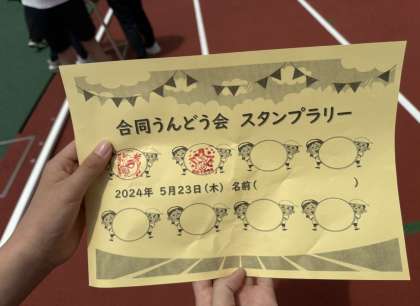 合同うんどう会 スタンプラリー
2024年 5月23日(木) 名前( )